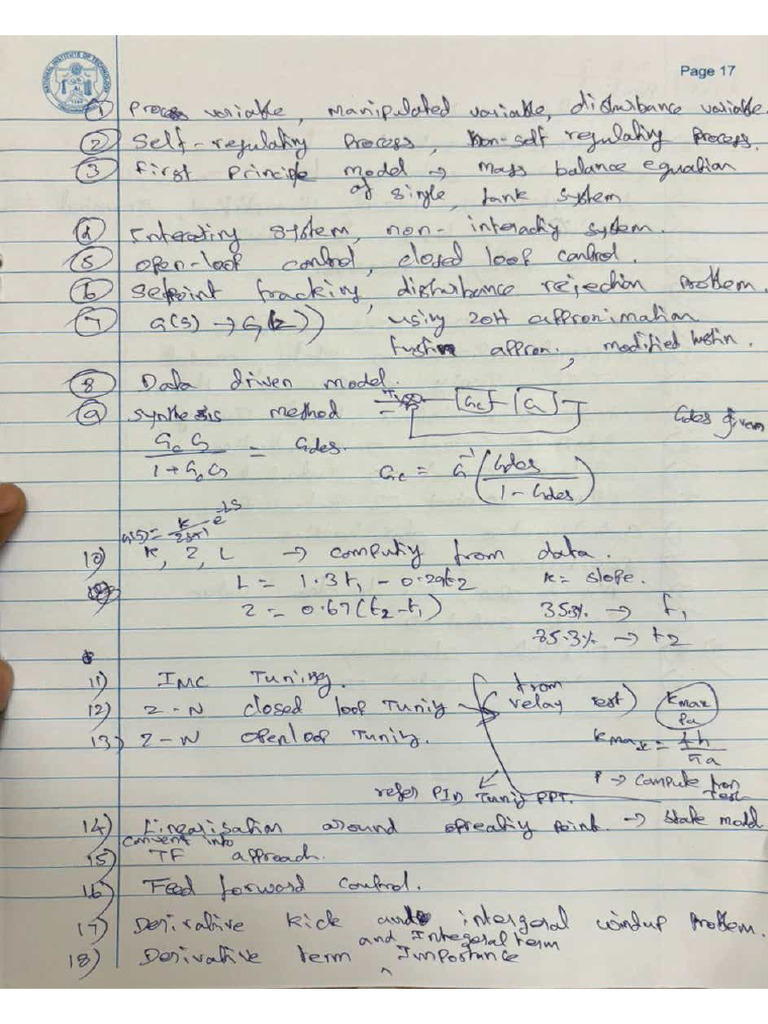 NATIONAL INSTITUTE OF TECHNOLOGY
Page 17
① Process variable, manipulated variable, disturbance variable.
② Self-regulating Process, Non-self regulating Process.
③ First Principle model → mass balance equation
of single tank system
④ Interacting system, non-interacting system.
⑤ open-loop control, closed loop control.
⑥ Setpoint tracking, disturbance rejection Problem.
⑦ G(s) → G(z)) using ZOH approximation
Tustin approx., modified tustin.
⑧ Data driven model.
⑨ synthesis method Gc G Gdes given
Gc G / 1 + Gc G = Gdes. Gc = G⁻¹ (Gdes / 1 - Gdes)
G(s) = K / τs+1 e^-LS
10) K, τ, L → computing from data.
L = 1.3t1 - 0.29t2 K = slope.
τ = 0.67(t2 - t1) 35.3% → t1
85.3% → t2
11) IMC Tuning.
12) Z-N closed loop Tuning from relay test) Kmax Pa
13) Z-N openloop Tuning. Kmax = 4h / πa
P → compute from test
refer PID Tuning PPT.
14) Linearisation around operating point. → state model
convert into
15) TF approach.
16) Feed forward control.
17) Derivative kick and intergeral windup Problem.
and Integeral term
18) Derivative term ^ Importance